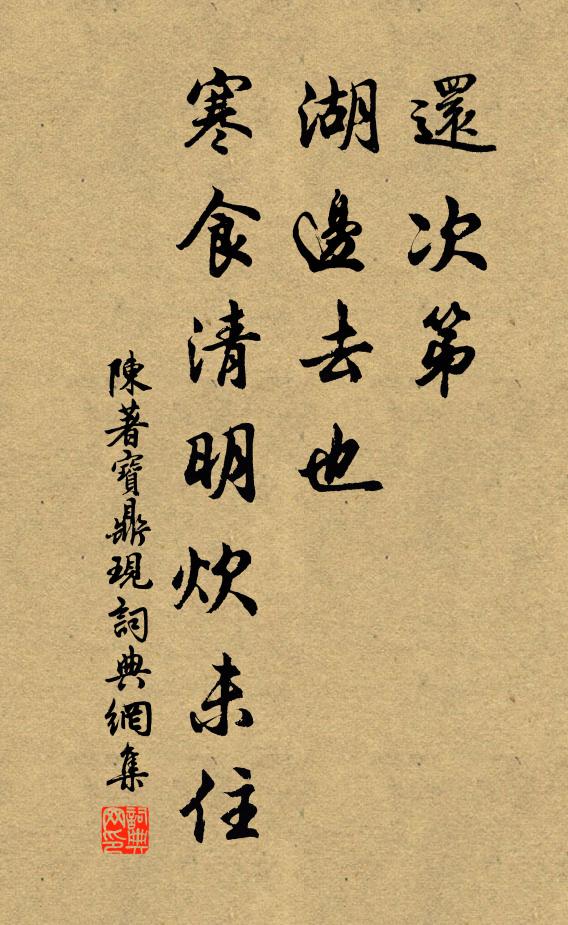 還次第
湖邊去也
寒食清明炊未住
陳著寶鼎現詞典網集
詞典网印